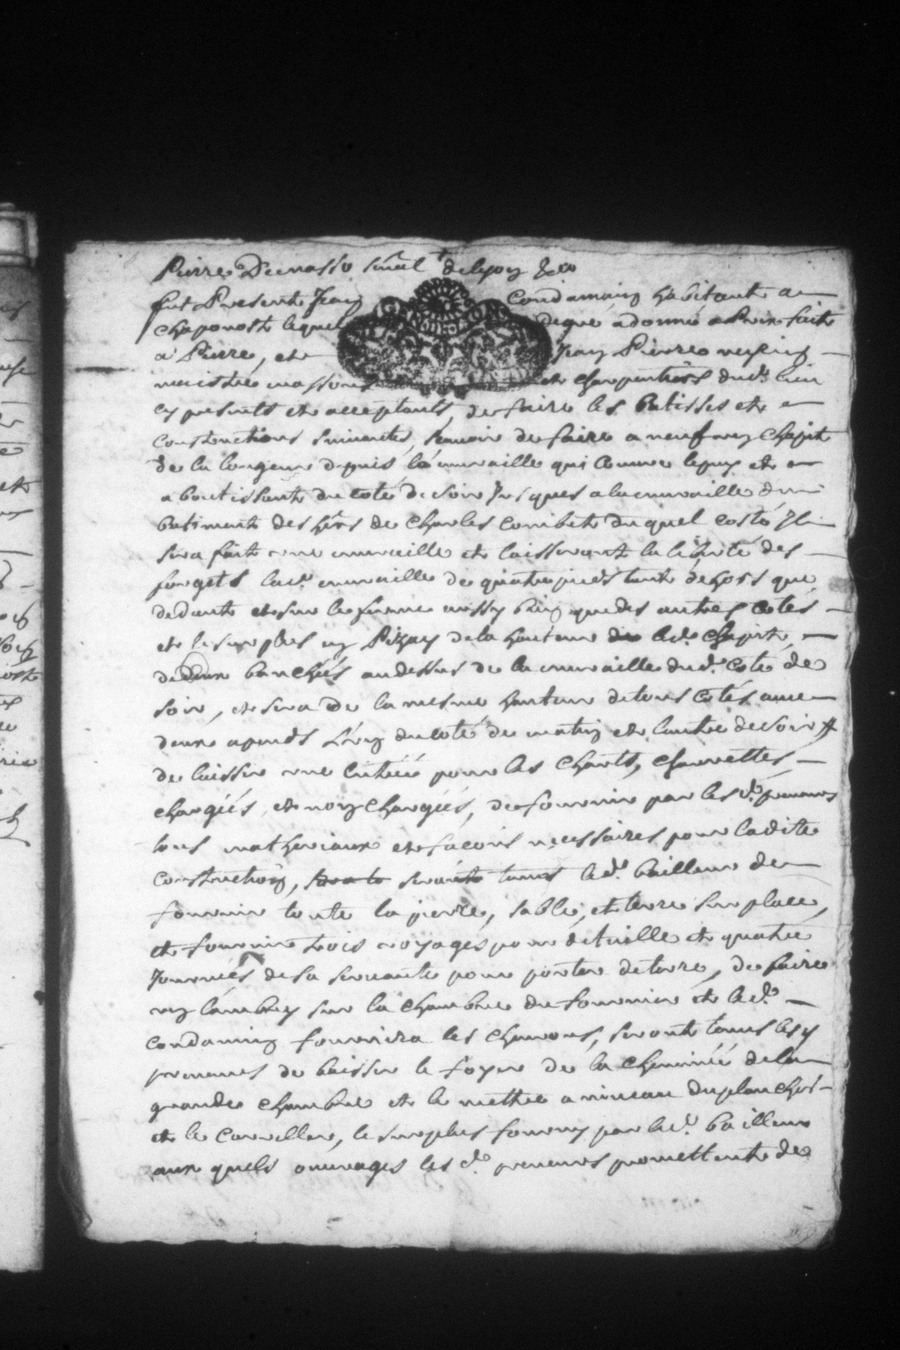 Pierre Decrasso sindt de lyon &ca
fut Present Jean Condaminy habitant a
chaponost lequel de gré a donné a Prix fait
a Pierre, et Jean Pierre
maistre massons et charpentiers dud. lieu
cy presents et acceptants, de faire les Batisses et
constructions suivantes, scavoir de faire a neuf un chapit
de la longeur depuis la muraille qui Couvre le puy et
aboutissante du coté de soir Jusques a la muraille du
batiment des hers de Charles Combet duquel costé Il
sera fait une muraille et laisseront la liberté des
forgets lad. muraille de quatre pieds tant dehors que
dedant et sur le ferme aussy bien que des autres cotés
et le surplus en Pizay de la hauteur du led. chapit,
de deux banchés au dessus de la muraille dud. coté de
soir, et sera de la mesme hauteur de tous cotés avec
deux apends l'un du coté de matin et l'autre de soir
de laisser une Entrée pour les Charts, charrettes
chargées, et non chargées, de fournir par lesd. preneurs
tous matheriaux et facons necessaires pour ladite
construction, sera tenus led. bailleur de
fournir toute la pierre, sable, et terre sur place,
et fournir trois voyages pour detuille et quatre
Journées de sa servante pour porter deterre, de faire
un lambry sur la chambre du fournier et led.
condaminy fournira les chevrons, seront tenus lesd
preneurs de baisser le foyer de la cheminée de la
grande chambre et le mettre a niveau du plancher
et le carreller, le surplus fourny par led. bailleur
aux quels ouvrages les d. preneurs promettent de